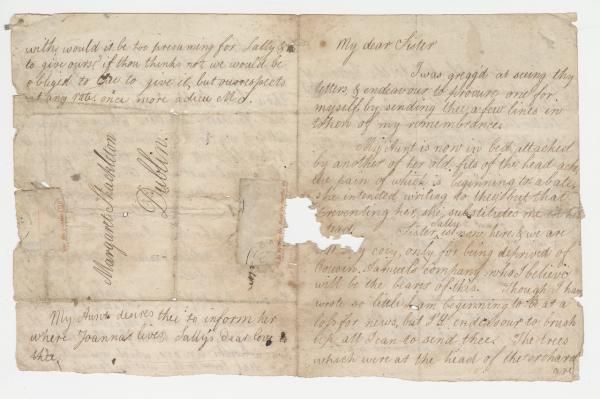 with, would it be too presuming for Sally &
to give ours? if thou thinks not we would be
obliged to thee to give it, but our respects
at any rate, once more adieu M S.
Margaret Shackleton
Dublin.
My Aunt desires thee to inform her
where Joanna lives. Sally's dear love to
thee,
My dear Sister
I was greg'd at seeing thy
letters, & endeavour to procure one for
myself, by sending thee a few lines in
token of my remembrance.
My Aunt is now in bed, attacked
by another of her old fits of the head-ache,
the pain of which is beginning to abate,
she intended writing to thee, but that
preventing her, she substitutes me in her
stead.
Sister Sally is now here & we are
very cosy, only for being deprived of
Cousin Samuel's company, who I believe
will be the bearer of this. Though I have
wrote so little I am beginning to be at a
loss for news, but I'll endeavour to brush
up all I can to send thee. The trees
which were at the head of the orchard
are